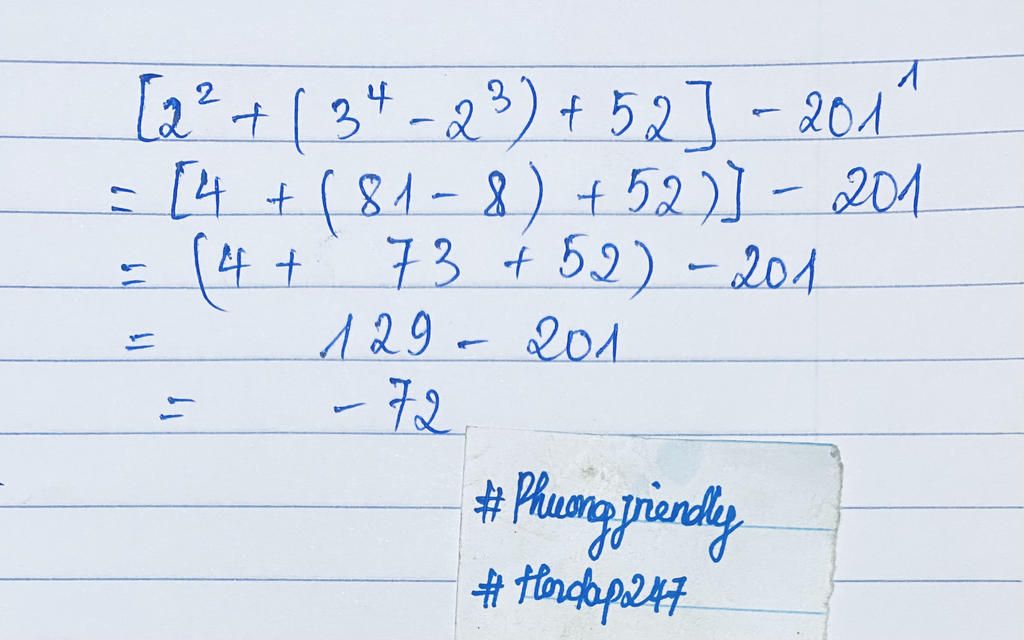 [2² + (3⁴ - 2³) + 52] - 201¹
= [4 + (81 - 8) + 52)] - 201
= (4 + 73 + 52) - 201
= 129 - 201
= - 72
# Phuongfriendly
# Hoidap247